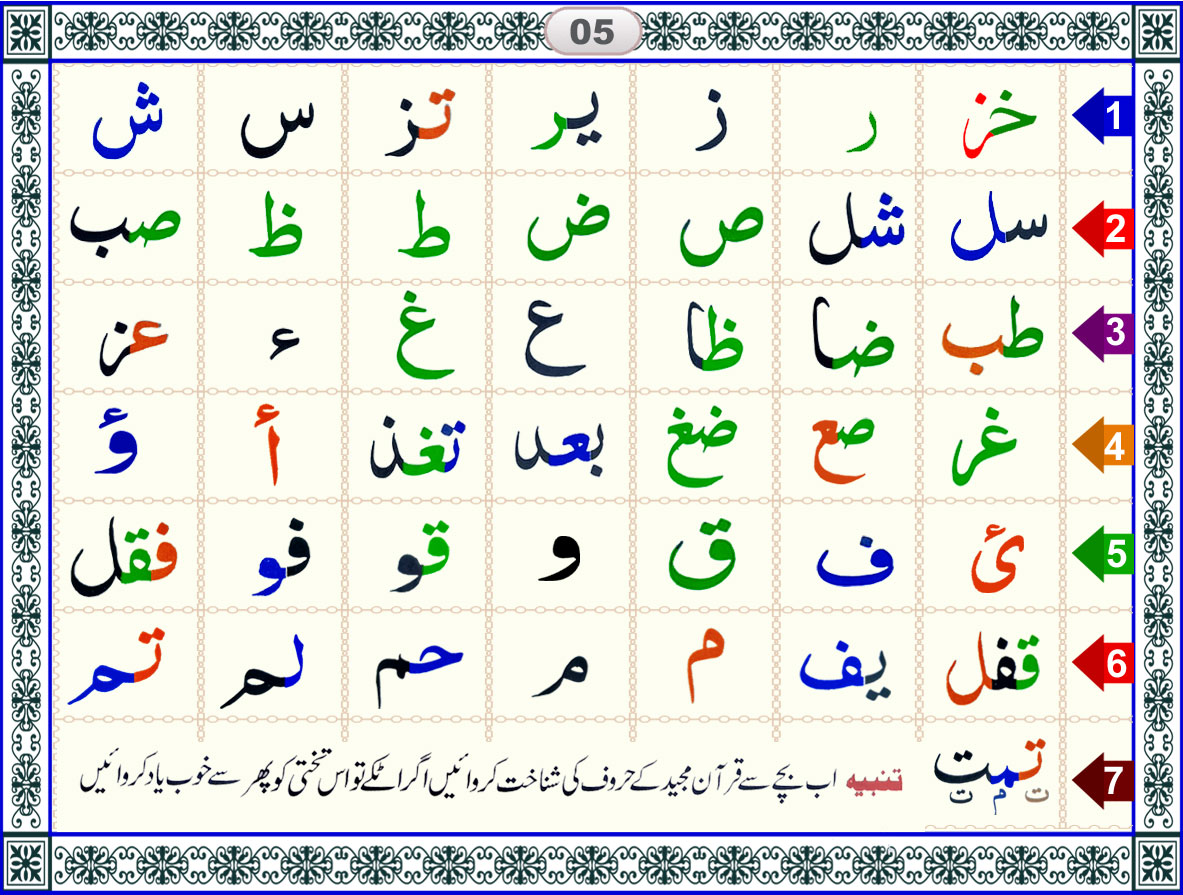 05
1 خز ر ز یر تز س ش
2 سل شل ص ض ط ظ صب
3 طب ضا ظا ع غ ء عز
4 غر صع ضغ بعد تغذ أ ؤ
5 ئ ف ق و قو فو فقل
6 قفل یف م م حم لم تم
7 تمت تنبیه اب بچے سے قرآن مجید کے حروف کی شناخت کروائیں اگر اٹکے تو اس تختی کو پھر سے خوب یاد کروائیں
ت م ت